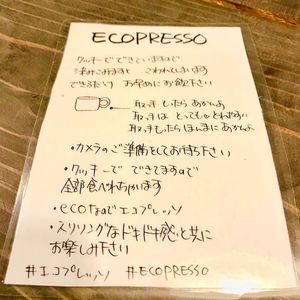 ECOPRESSO
クッキーで できていますので
染みこみますと こわれてしまいます
できるだけ お早めにお飲み下さい
取っ手したらあかんよ
取っ手は とっても とれやすい
取っ手したらほんまにあかんよ
・カメラのご準備をしてお待ち下さい
・クッキーで できてますので
全部食べれちゃいます
・ecoなのでエコプレッソ
・スリリングなドキドキ感と共に
お楽しみ下さい
#エコプレッソ #ECOPRESSO